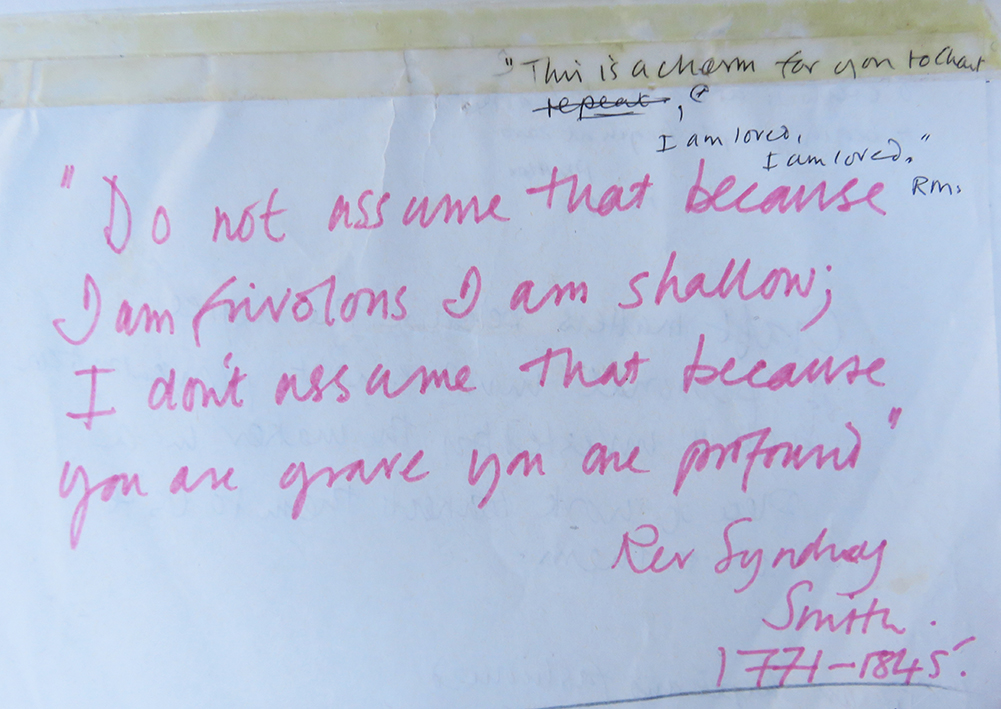 "This is a charm for you to chant
repeat,
I am loved,
I am loved."
RM.
"Do not assume that because
I am frivolous I am shallow;
I don't assume that because
you are grave you are profound"
Rev Syndney
Smith.
1771-1845.